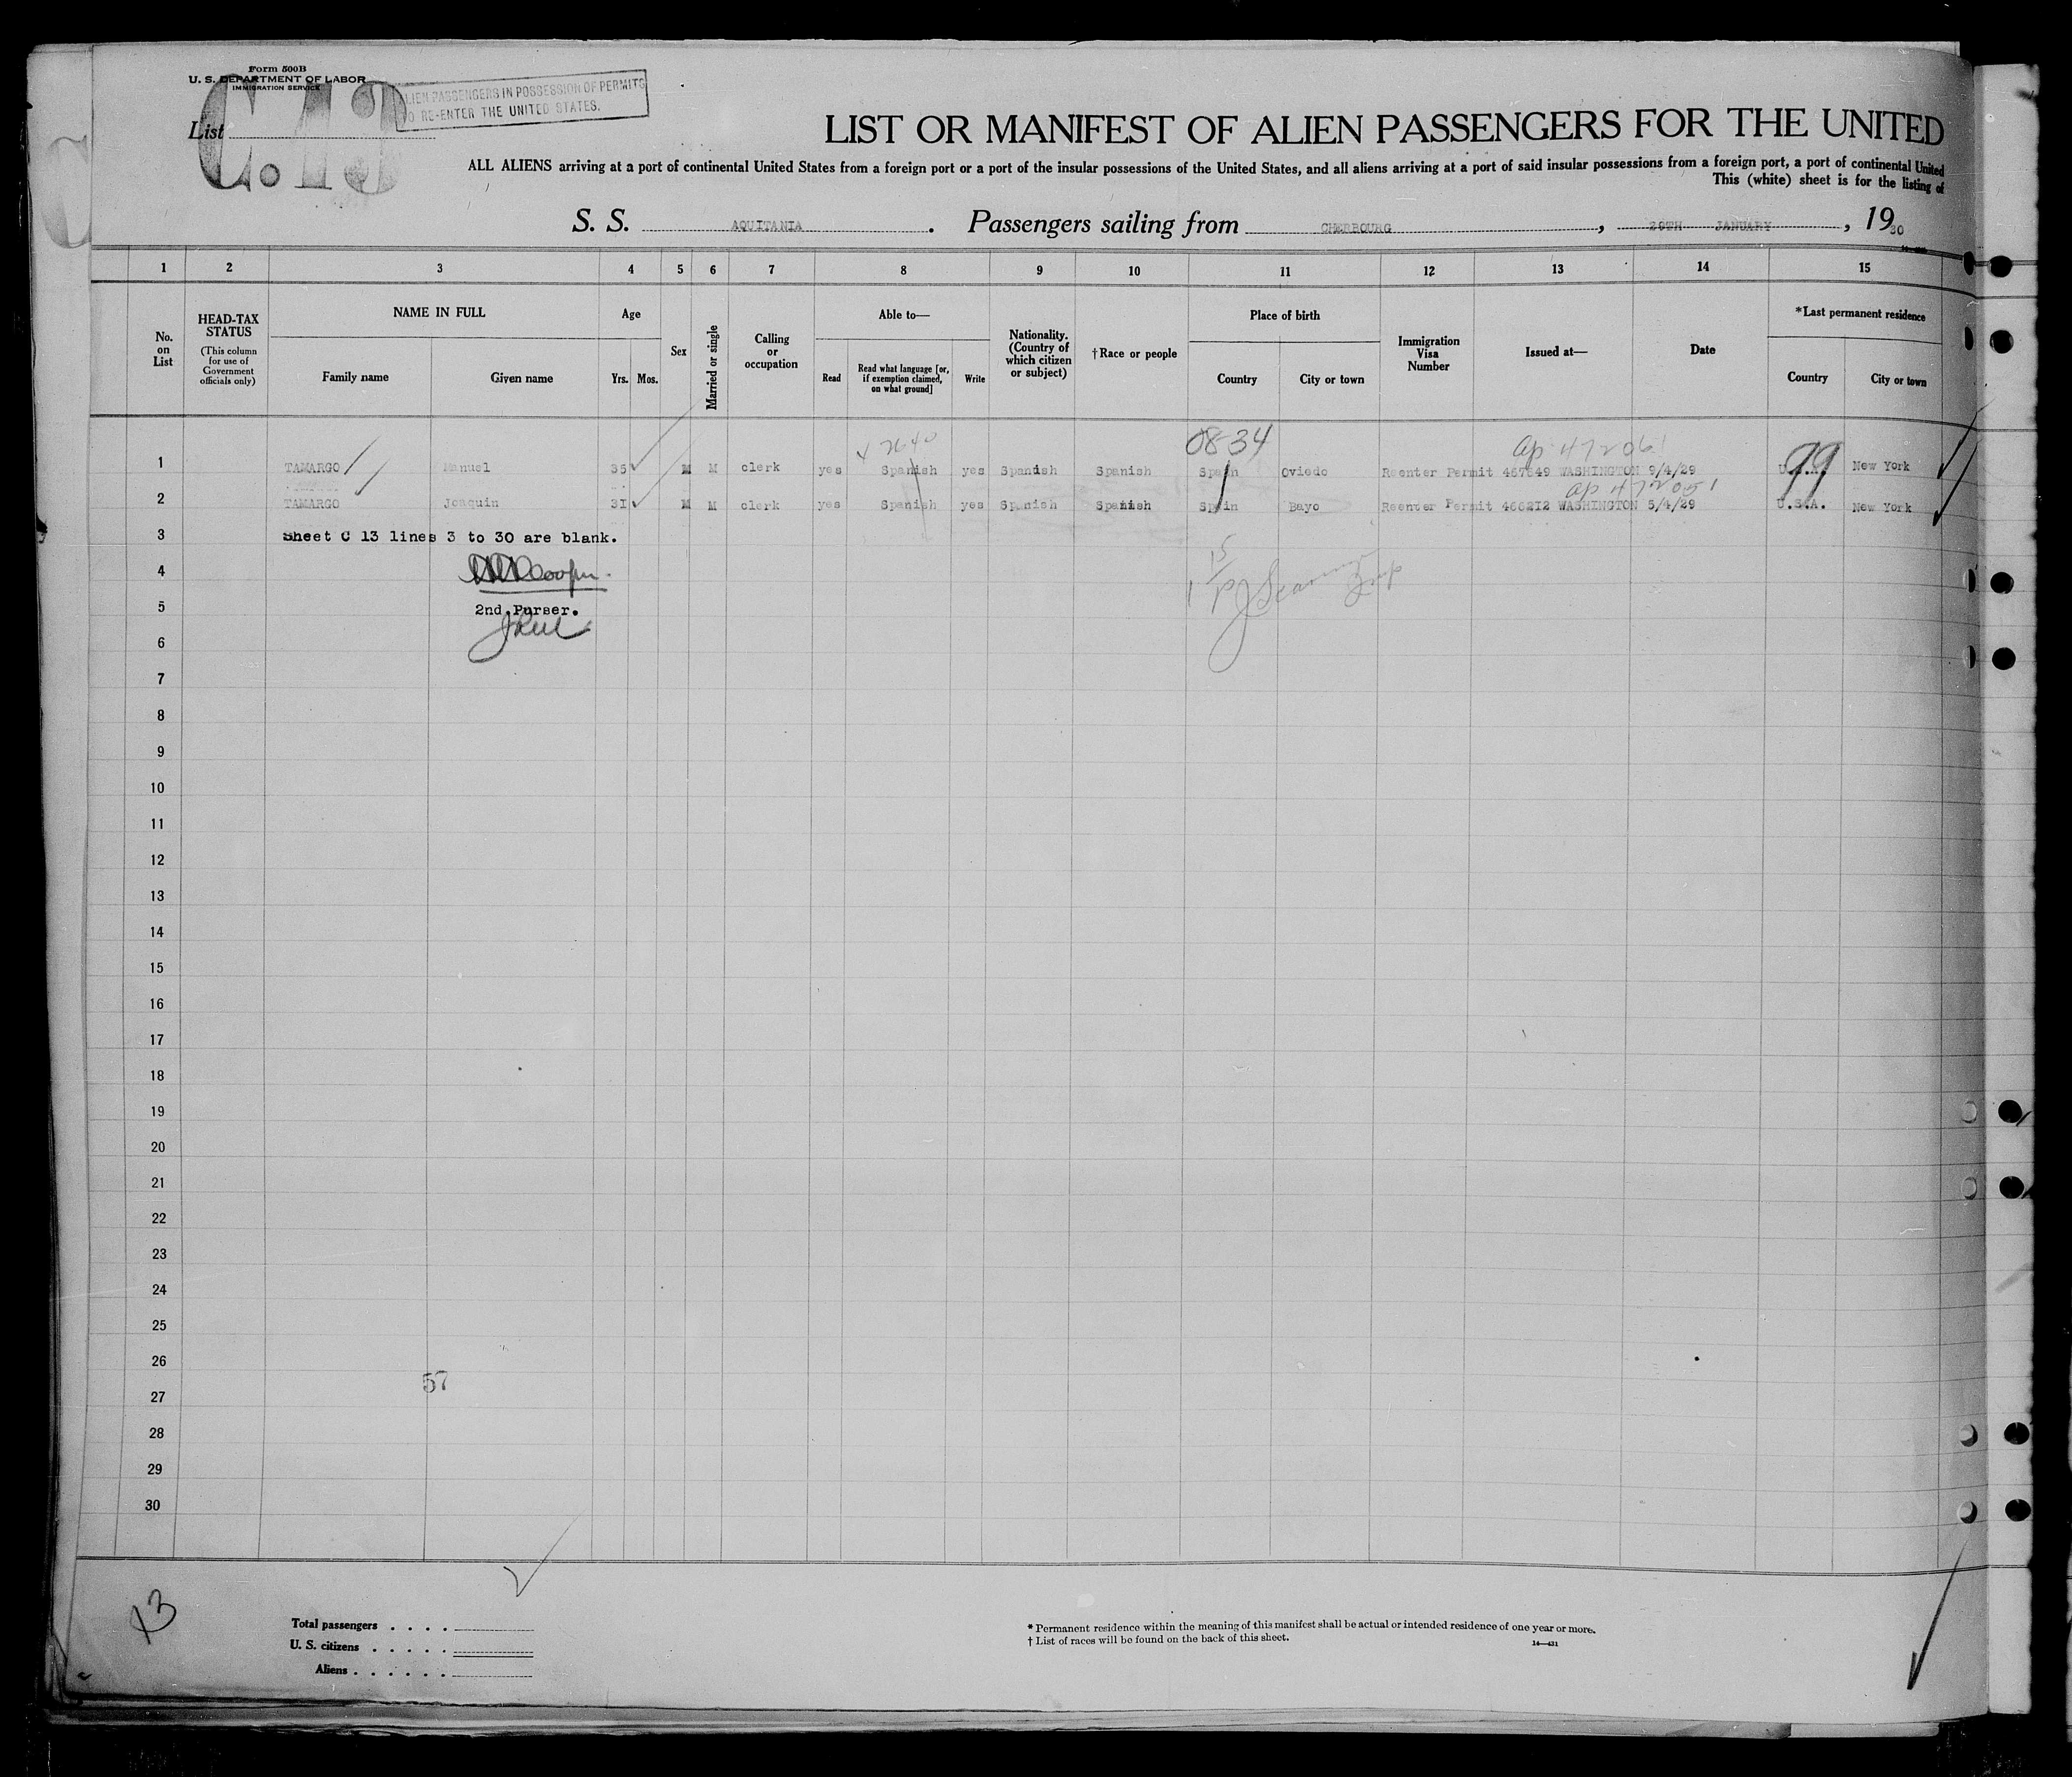 Form 500B
U. S. DEPARTMENT OF LABOR
IMMIGRATION SERVICE
ALIEN PASSENGERS IN POSSESSION OF PERMITS
TO RE-ENTER THE UNITED STATES.
List C.13
LIST OR MANIFEST OF ALIEN PASSENGERS FOR THE UNITED
ALL ALIENS arriving at a port of continental United States from a foreign port or a port of the insular possessions of the United States, and all aliens arriving at a port of said insular possessions from a foreign port, a port of continental United
This (white) sheet is for the listing of
S. S. AQUITANIA. Passengers sailing from CHERBOURG, JANUARY, 1930
1 2 3 4 5 6 7 8 9 10 11 12 13 14 15
No. on List
HEAD-TAX STATUS
(This column for use of Government officials only)
NAME IN FULL
Family name Given name
Age
Yrs. Mos.
Sex
Married or single
Calling or occupation
Able to—
Read
Read what language [or, if exemption claimed, on what ground]
Write
Nationality. (Country of which citizen or subject)
†Race or people
Place of birth
Country City or town
Immigration Visa Number
Issued at—
Date
*Last permanent residence
Country City or town
08-34
99
1 TAMARGO Manuel 35 M M clerk yes Spanish yes Spanish Spanish Spain Oviedo Reenter Permit WASHINGTON 9/4/29 New York
2 TAMARGO Joaquin 31 M M clerk yes Spanish yes Spanish Spanish Spain Bayo Reenter Permit 466212 WASHINGTON 5/4/29 U.S.A. New York
3 Sheet C 13 lines 3 to 30 are blank.
4
5 2nd. Purser.
6
7
8
9
10
11
12
13
14
15
16
17
18
19
20
21
22
23
24
25
26
57
27
28
29
30
13
Total passengers
U. S. citizens
Aliens
* Permanent residence within the meaning of this manifest shall be actual or intended residence of one year or more.
† List of races will be found on the back of this sheet.
14—431